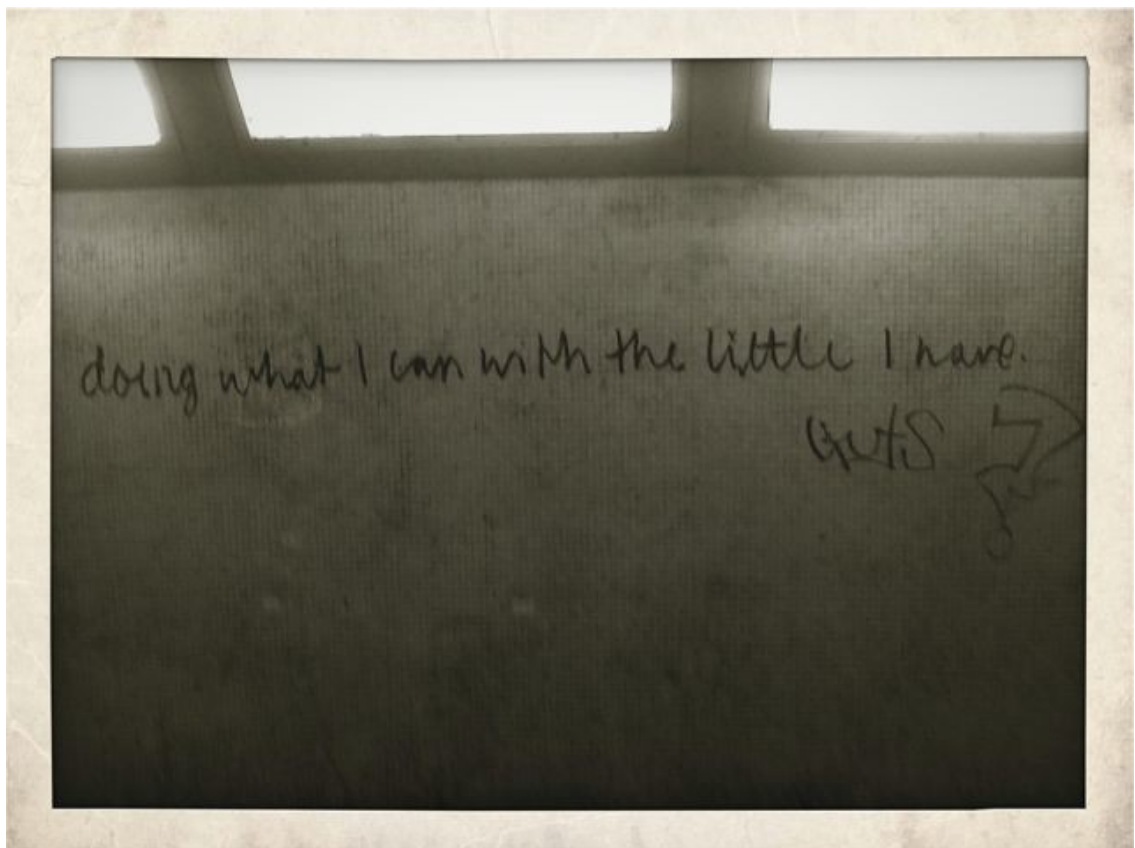 doing what I can with the little I have.
GutS